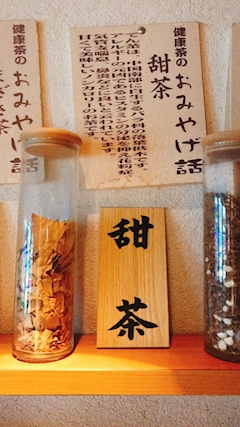 健康茶のおみやげ話
甜茶
てん茶は、中国南部に自生するバラ科の落葉低木です。
アレルギーの元凶であるヒスタミンの分泌を抑え花粉症、
気管支喘息、鼻炎などに良いと云われています。
甘くて美味しいノンカロリーのお茶です。
健康茶のおみやげ話
甜茶